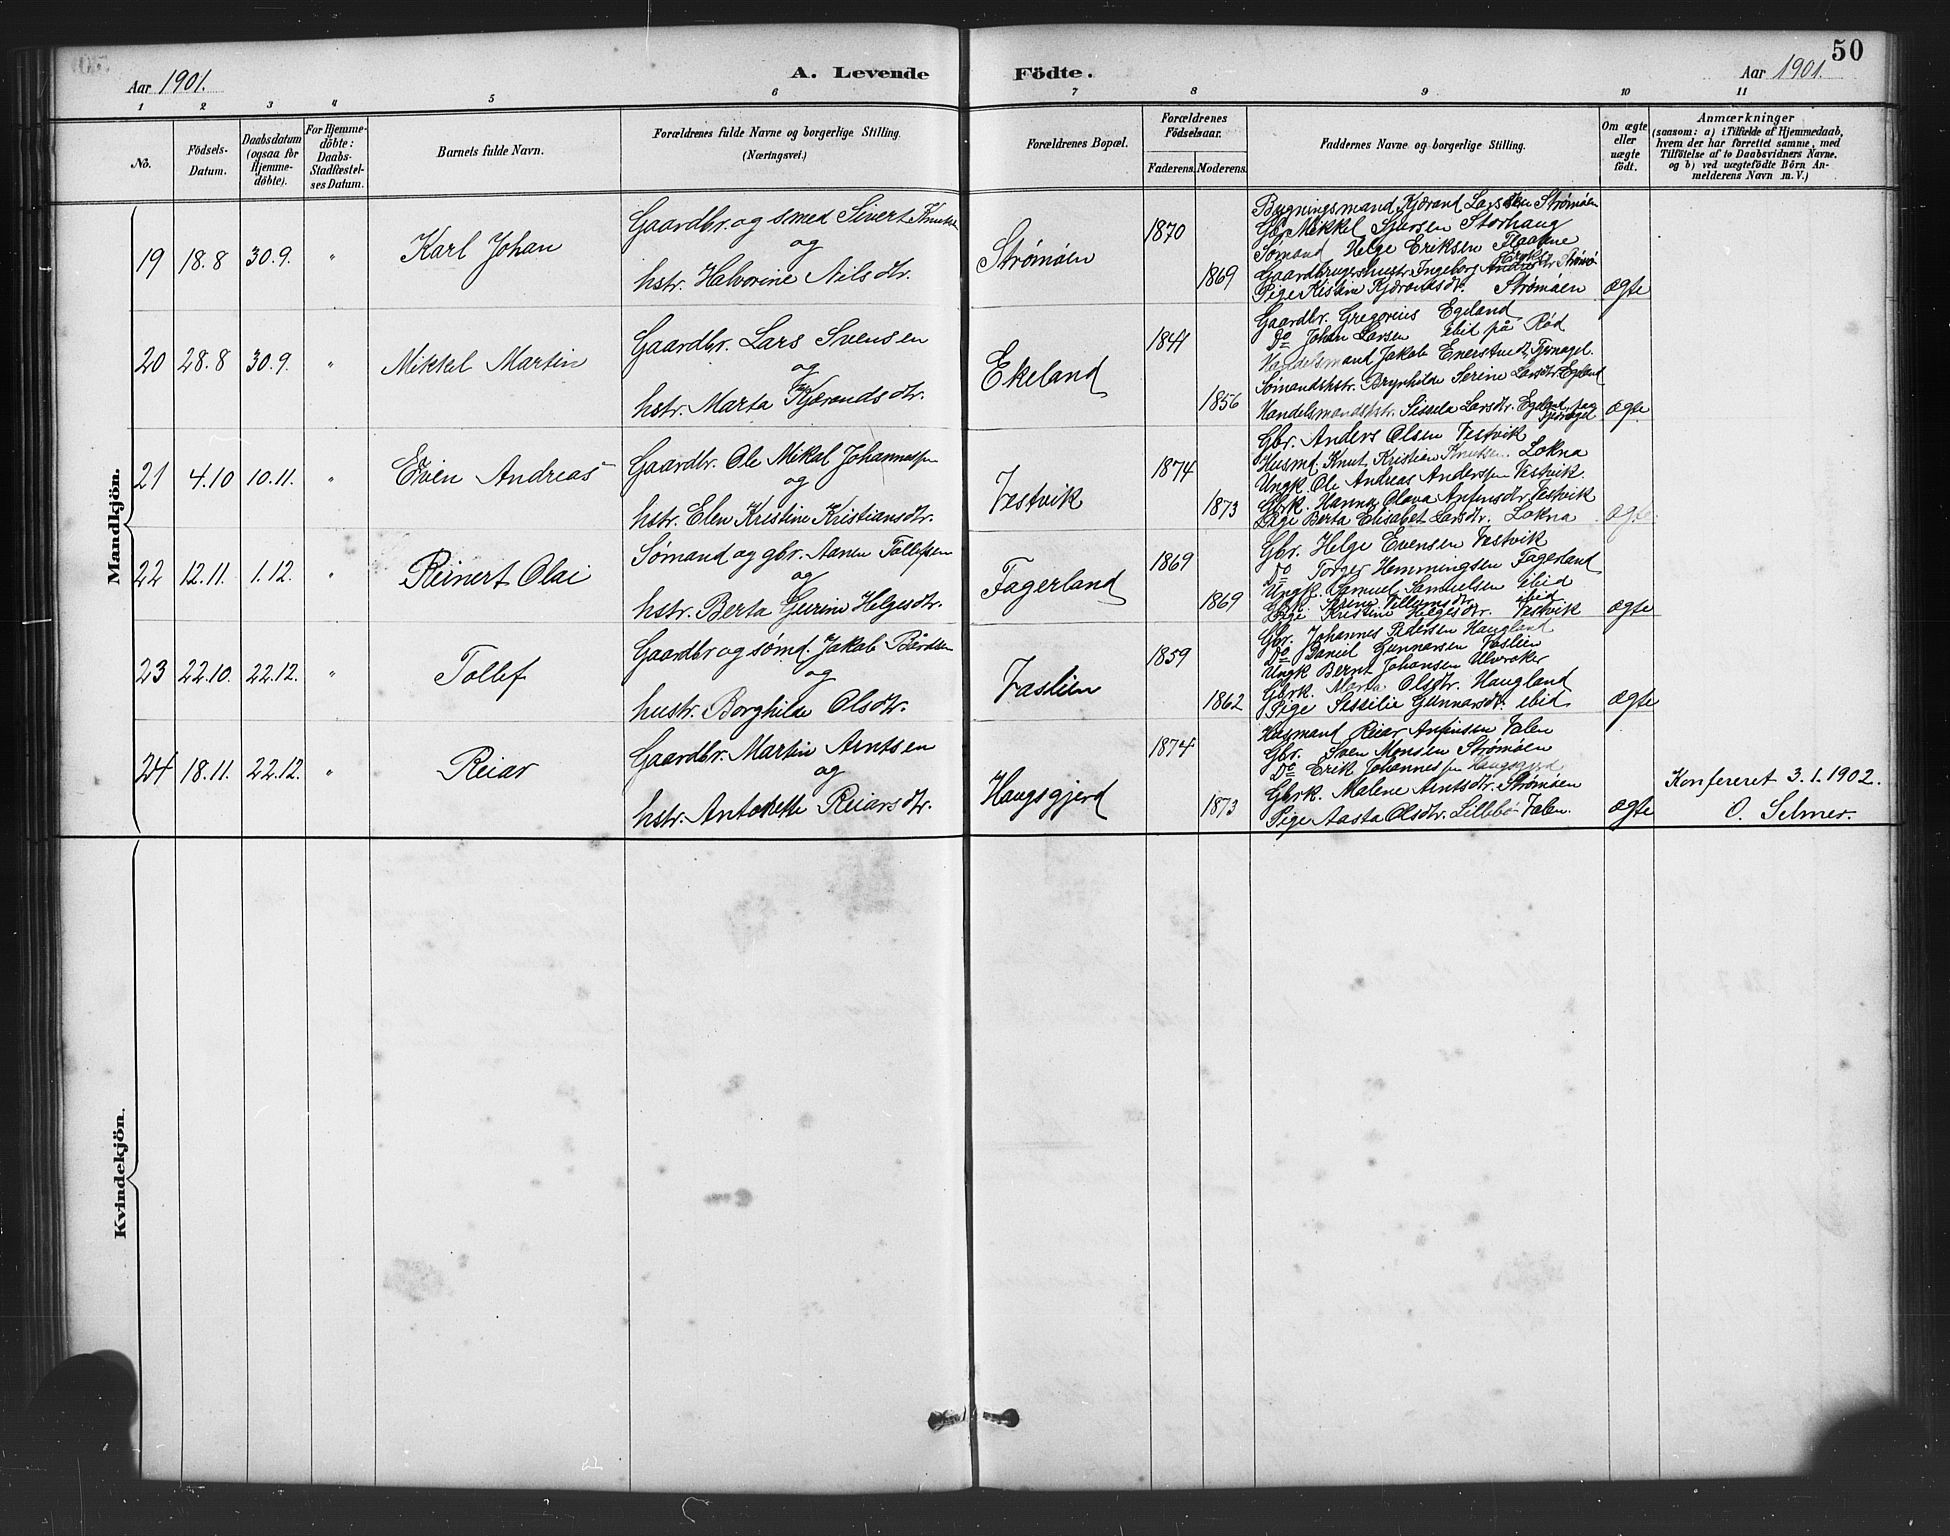 50
Aar 1901. A. Levende Födte. Aar 1901.
1 2 3 4 5 6 7 8 9 10 11
No.
Födsels-Datum.
Daabsdatum (ogsaa for Hjemme-döbte).
For Hjemme-döbte: Daabs-Stadfæstel-ses Datum.
Barnets fulde Navn.
Forældrenes fulde Navne og borgerlige Stilling.
(Næringsvei.)
Forældrenes Bopæl.
Forældrenes Födselsaar.
Faderens. Moderens.
Faddernes Navne og borgerlige Stilling.
Om ægte eller uægte födt.
Anmærkninger
(saasom: a) i Tilfælde af Hjemmedaab, hvem der har forrettet samme, med Tilföielse af to Daabsvidners Navne. og b) ved uægtefödte Börn An-melderens Navn m. V.)
Mandkjön.
19 18.8 30.9. " Karl Johan
Gaardbr. og smed Sivert Knutsen
og
hstr. Halvorine Nilsdtr.
Strømøen
1870
1869
Bygningsmand Kjærand Larsen Strømøen
Gbr. Mikkel Sjursen Storhaug
Sømand Helge Eriksen
Gaardbrugerhustr. Ingeborg Strømø
Pige Kistine Kjærandsdtr. Strømøen
ægte
20 28.8 30.9. " Mikkel Martin
Gaardbr. Lars Svensen
og
hstr. Marta Kjærandsdtr.
Ekeland
1841
1856
Gaardbr. Gregorius Egeland
Do Johan Larsen ibid på Rød
Handelsmand Jakob
Sømandshstr. Brynhilde Serine Larsdtr. Egeland
Handelsmandshstr. Sissela Larsdtr. Egeland
ægte
21 4.10 10.11. " Even Andreas
Gaardbr. Ole Mikal Johannessen
og
hstr. Elen Kristine Kristiansdtr.
Vestvik
1874
1873
Gbr. Anders Olsen Vestvik
Husmd. Knut Kristian Knutsen Lokna
Ungk. Ole Andreas Anderssen Vestvik.
Gbrk. Hanna Olava Vestvik
Pige Berta Elisabet Larsdtr. Lokna
ægte
22 12.11. 1.12. " Reinert Olai
Sømand og gbr. Aanen Tollefsen
og
hstr. Berta Gurine Helgesdtr.
Fagerland
1869
1869
Gbr. Helge Evensen Vestvik
Do Torger Hemmingsen Fagerland
Ungk. Samuel Samuelsen ibid
Gbrk. Serina Villumsdtr. ibid
Pige Kristine Helgesdtr. Vestvik
ægte
23 22.10. 22.12. " Tollef
Gaardbr og sømd. Jakob Bårdsen
og
hustr. Borghilde Olsdtr.
Vaslien
1859
1862
Gbr. Johannes Pedersen Haugland
Do Daniel Gunnarsen Vaslien
Ungk Bernt Johansen Ulveraker
Gbrk. Marta Olsdtr. Haugland
Pige Sessilie Gunnarsdtr. ibid
ægte
24 18.11. 22.12. " Reiar
Gaardbr. Martin Arntsen
og
hstr. Antonette Reiarsdtr.
Haugsgjerd
1874
1873
Husmand Reiar Anfinsen Valen
Gbr. Sven Monsen Strømøen
Do Erik Johannessen Haugsgjerd
Gbrk. Malene Arntsdtr. Strømøen
Pige Aasta Olsdtr. Lillebø Valen.
ægte
Konfereret 3.1.1902.
O. Selmer.
Kvindekjön.